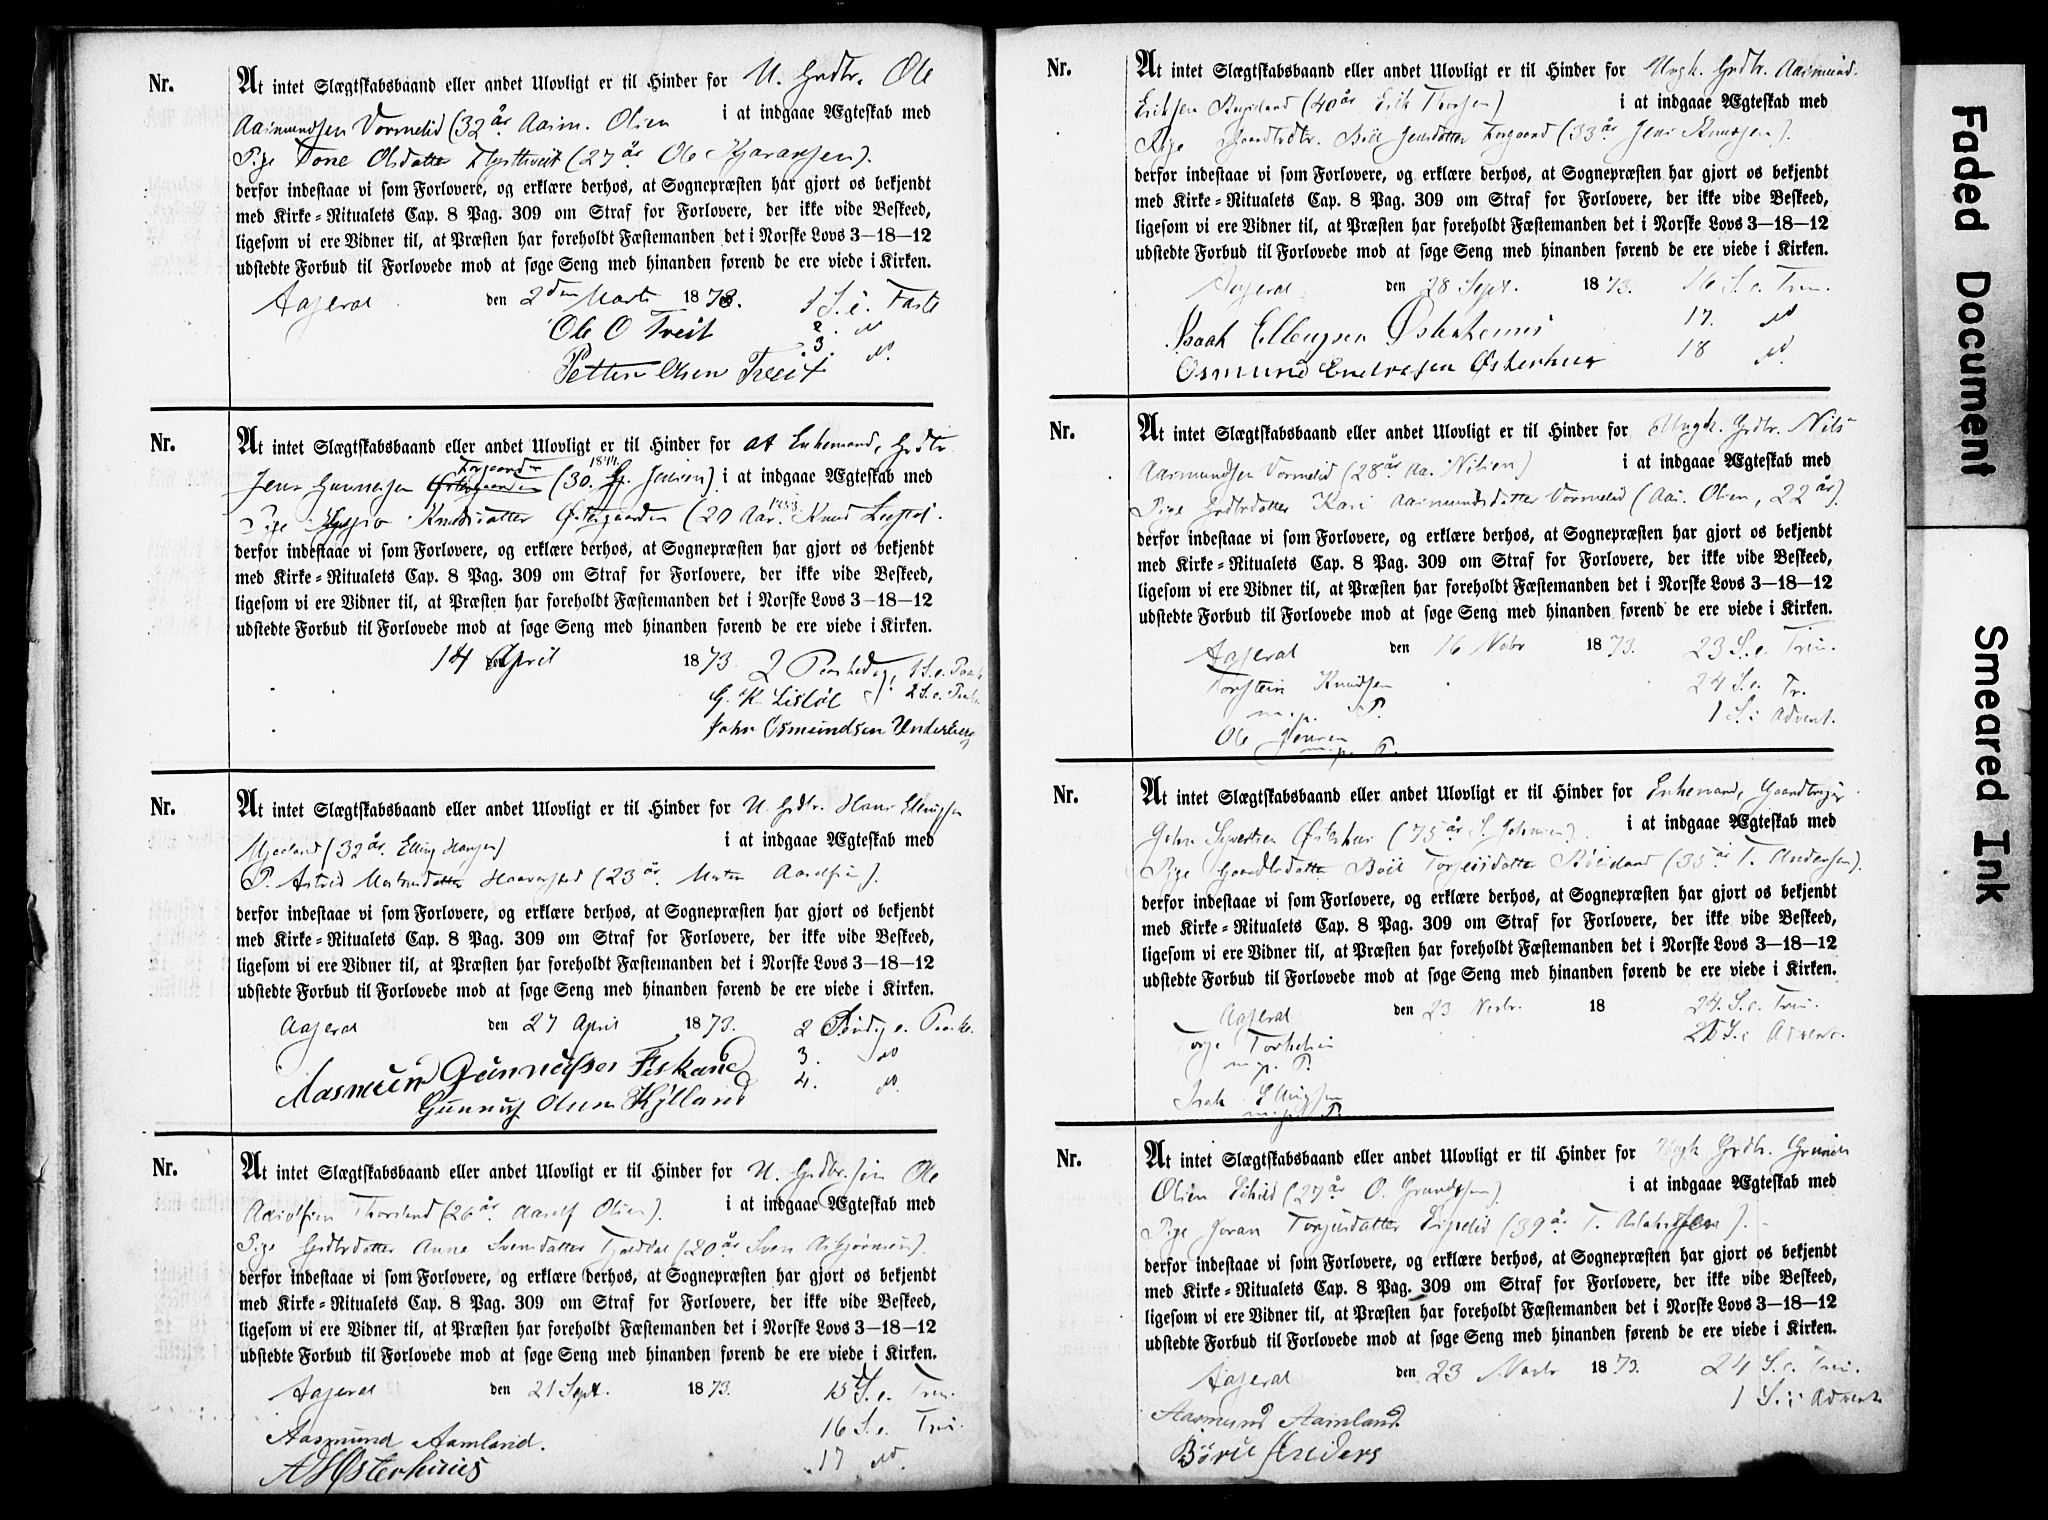 Nr. At intet Slægtskabsbaand eller andet Ulovligt er til Hinder for U. Grdbr. Ole
Aasmundsen Vormelid (32 år Aasm. Olsen i at indgaae Ægteskab med
Pige Tone Olsdatter (27 år Ole ).
derfor indestaae vi som Forlovere, og erklære derhos, at Sognepræsten har gjort os bekjendt
med Kirke-Ritualets Cap. 8 Pag. 309 om Straf for Forlovere, der ikke vide Beskeed,
ligesom vi ere Vidner til, at Præsten har foreholdt Fæstemanden det i Norske Lovs 3-18-12
udstedte Forbud til Forlovede mod at søge Seng med hinanden førend de ere viede i Kirken.
Aaseral den 2den Marts 1873. 1 S. i Faste
Ole O Tveit 2. do
Petter Olsen Tveit 3. do.
Nr. At intet Slægtskabsbaand eller andet Ulovligt er til Hinder for at Enkemand, Grdbr
Jens Gunnersen (30. 1844. Jensen) i at indgaae Ægteskab med
Pige Knudsdatter Østergaarden (20 Aar. 1853. Knud
derfor indestaae vi som Forlovere, og erklære derhos, at Sognepræsten har gjort os bekjendt
med Kirke-Ritualets Cap. 8 Pag. 309 om Straf for Forlovere, der ikke vide Beskeed,
ligesom vi ere Vidner til, at Præsten har foreholdt Fæstemanden det i Norske Lovs 3-18-12
udstedte Forbud til Forlovede mod at søge Seng med hinanden førend de ere viede i Kirken.
14 April 1873. 2 Paaskedag, 1 S. e. Paaske
G. K. Lisløl 2 S. e. Paaske
John Osmundsen Underberg
Nr. At intet Slægtskabsbaand eller andet Ulovligt er til Hinder for U. Grdbr. Hans Ellingsen
(32 år. Elling Hansen) i at indgaae Ægteskab med
P. Astrid Mortensdatter (23 år. Morten ).
derfor indestaae vi som Forlovere, og erklære derhos, at Sognepræsten har gjort os bekjendt
med Kirke-Ritualets Cap. 8 Pag. 309 om Straf for Forlovere, der ikke vide Beskeed,
ligesom vi ere Vidner til, at Præsten har foreholdt Fæstemanden det i Norske Lovs 3-18-12
udstedte Forbud til Forlovede mod at søge Seng med hinanden førend de ere viede i Kirken.
Aaseral den 27 April 1873. 2 Søndg e. Paaske.
Aasmund Gunnufsen Fiskand 3. do
Gunnuf Olsen Kylland 4. do.
Nr. At intet Slægtskabsbaand eller andet Ulovligt er til Hinder for U. Grdbr.søn Ole
Aasolfsen Thorsland (26 år Aasolf Olsen). i at indgaae Ægteskab med
Pige Grdbrdatter Anne Svensdatter (20 år Sven Asbjørnsen).
derfor indestaae vi som Forlovere, og erklære derhos, at Sognepræsten har gjort os bekjendt
med Kirke-Ritualets Cap. 8 Pag. 309 om Straf for Forlovere, der ikke vide Beskeed,
ligesom vi ere Vidner til, at Præsten har foreholdt Fæstemanden det i Norske Lovs 3-18-12
udstedte Forbud til Forlovede mod at søge Seng med hinanden førend de ere viede i Kirken.
Aaseral den 21 Sept. 1873. 15 S. e. Trin.
Aasmund Aamland. 16 S. e. Trin.
Østerhuus 17 do.
Nr. At intet Slægtskabsbaand eller andet Ulovligt er til Hinder for Ungk. Grdbr. Aasmund
Eriksen (40 år Erik ) i at indgaae Ægteskab med
Pige Gaardbrdtr. Boel Jensdatter (33 år Jens Knudsen).
derfor indestaae vi som Forlovere, og erklære derhos, at Sognepræsten har gjort os bekjendt
med Kirke-Ritualets Cap. 8 Pag. 309 om Straf for Forlovere, der ikke vide Beskeed,
ligesom vi ere Vidner til, at Præsten har foreholdt Fæstemanden det i Norske Lovs 3-18-12
udstedte Forbud til Forlovede mod at søge Seng med hinanden førend de ere viede i Kirken.
Aaseral den 28 Sept. 1873. 16 S. e. Trin.
Isaak Ellengsen 17. do
Osmund Endresen Østerhus 18 do
Nr. At intet Slægtskabsbaand eller andet Ulovligt er til Hinder for Ungk. Grdbr. Nils
Aasmundsen Vormelid (28 år Aa. Nilsen) i at indgaae Ægteskab med
Pige Grdbrdatter Kari Aasmundsdatter Vormelid (Aas. Olsen, 22 år).
derfor indestaae vi som Forlovere, og erklære derhos, at Sognepræsten har gjort os bekjendt
med Kirke-Ritualets Cap. 8 Pag. 309 om Straf for Forlovere, der ikke vide Beskeed,
ligesom vi ere Vidner til, at Præsten har foreholdt Fæstemanden det i Norske Lovs 3-18-12
udstedte Forbud til Forlovede mod at søge Seng med hinanden førend de ere viede i Kirken.
Aaseral den 16 Nobr 1873. 23 S. e. Trin.
Torstein Knudsen 24 S. e. Tr.
m. p. P. 1 S. i Advent.
Ole Jensen
m. p. P.
Nr. At intet Slægtskabsbaand eller andet Ulovligt er til Hinder for Enkemand, Gaardbruger
Sivertsen Østerhus (75 år ). i at indgaae Ægteskab med
Pige Gaardbrdatter Boel Torjeisdatter (35 år T. Andersen).
derfor indestaae vi som Forlovere, og erklære derhos, at Sognepræsten har gjort os bekjendt
med Kirke-Ritualets Cap. 8 Pag. 309 om Straf for Forlovere, der ikke vide Beskeed,
ligesom vi ere Vidner til, at Præsten har foreholdt Fæstemanden det i Norske Lovs 3-18-12
udstedte Forbud til Forlovede mod at søge Seng med hinanden førend de ere viede i Kirken.
Aaseral den 23 Novbr. 18 24. S. e. Trin.
S. i Advent.
m. p. P.
Isak Ellingsen
m. p. P.
Nr. At intet Slægtskabsbaand eller andet Ulovligt er til Hinder for Ungk Grdbr.
Olsen (27 år O. ). i at indgaae Ægteskab med
Pige Joran Torjusdatter (39 år T. ).
derfor indestaae vi som Forlovere, og erklære derhos, at Sognepræsten har gjort os bekjendt
med Kirke-Ritualets Cap. 8 Pag. 309 om Straf for Forlovere, der ikke vide Beskeed,
ligesom vi ere Vidner til, at Præsten har foreholdt Fæstemanden det i Norske Lovs 3-18-12
udstedte Forbud til Forlovede mod at søge Seng med hinanden førend de ere viede i Kirken.
Aaseral den 23 Novbr 1873. 24 S. e. Trin.
Aasmund Aamland. 1 S. i Advent
Faded Document
Smeared Ink